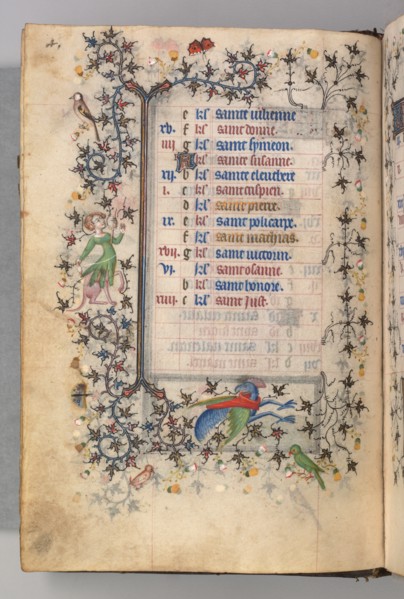 e kl' Sainte iulienne
xv. f kl' Saint donne.
iiii g kl' Saint symeon.
A kl' Sainte susanne.
xii. b kl' Saint eleuthere
i. c kl' Saint crispien.
d kl' Saint pierre.
ix. e kl' Saint policarpe.
f kl' Saint mathias.
xvii. g kl' Saint victorin.
vi. kl' Saint osanne.
b kl' Saint honore.
xiiii. c kl' Saint iust.